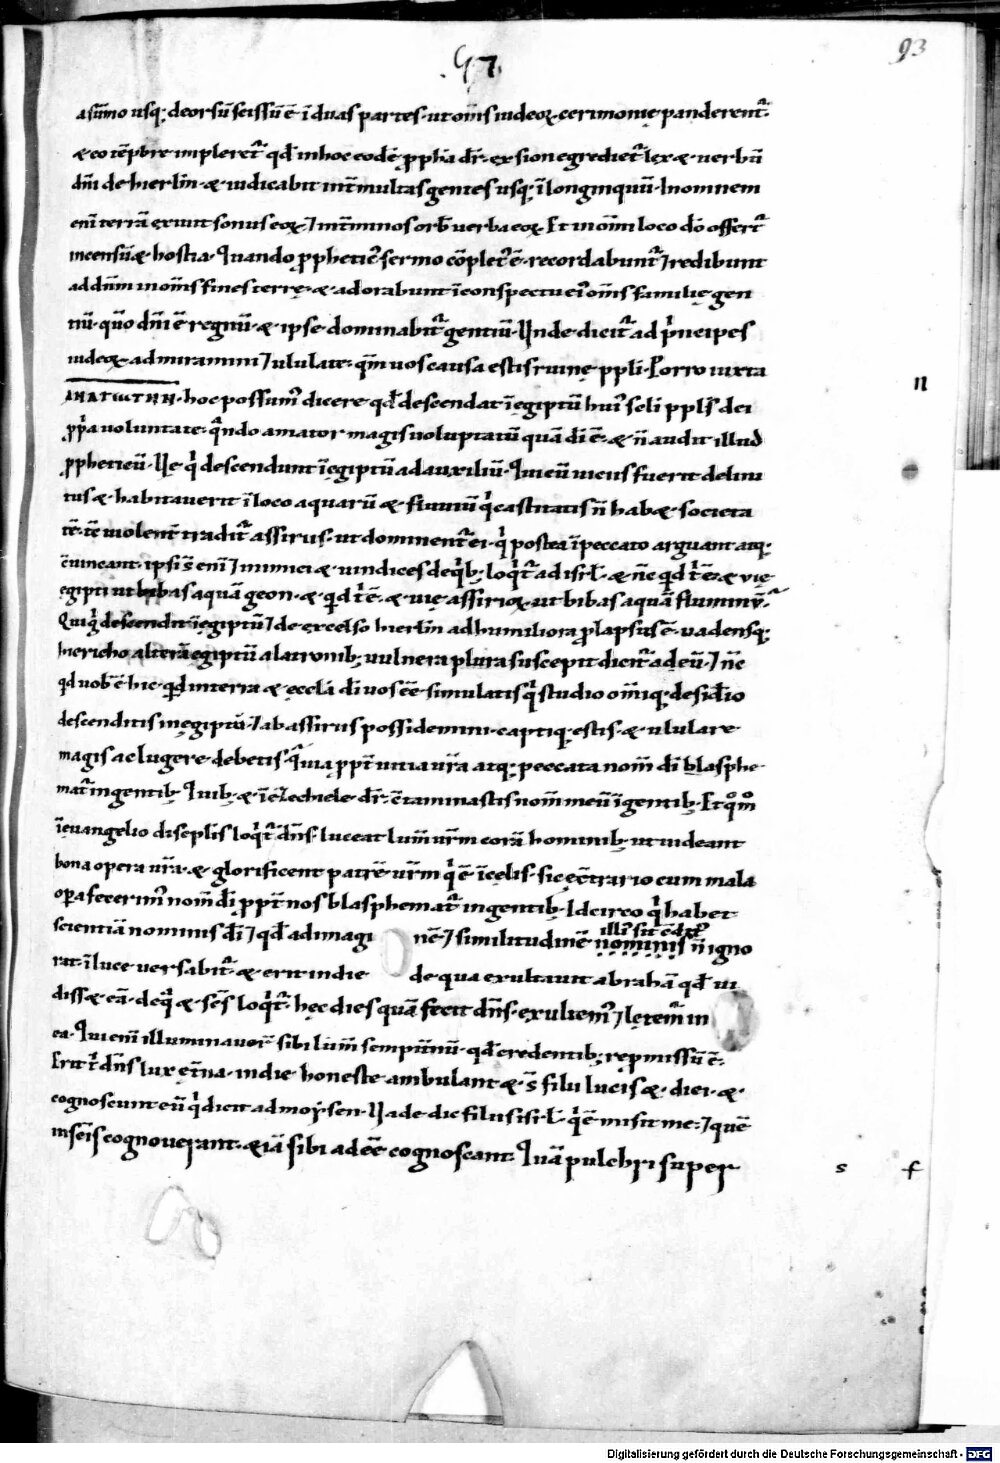 93
.57.
asum̄mo usq; deorsū scissū ē ī duas partes · ut om̄s iudeoꝝ cerimonię panderent᷑·
& eo tēpore impleret᷑ qđ inhoc eodē p̄pha dr̄· exsion egrediet᷑ lex & uerbū
dn̄i de hierlm̄ · & iudicabit int̄ multas gentes usq; ī longinquū · Inomnem
enī terrā exiuit sonus eoꝝ ⁊ int̄minos orb̄ uerba eoꝝ · Et inom̄i loco dō offert᷑
incensū & hostia · Quando ꝓpheticꝰ sermo cōpletꝰ ē · recordabunt᷑ ⁊ redibunt
addnm̄ inom̄s fines terrę · & adorabunt īconspectu eiꝰ om̄s familię gen
tiū · qm̄o dn̄i ē regnū · & ipse dominabit᷑ gentiū · Unde dicit᷑ ad p̄ncipes
iudeoꝝ · admiramini ⁊ ululate · qm̄ uos causa estis ruinę ppli · Porro iuxta
hoc possumꝰ dicere qđ descendat īegiptū huiꝰ seli ppls̄ dei
ꝓp̄a uoluntate · qn̄do amator magis uoluptatū quā dī ē · & n̄ audit illud
ꝓpheticū · Ne q̇ descendunt īegiptū adauxiliū · Qui cū uictus fuerit delini
tus & habitauerit ī loco aquarū & fluuiū q̇ castitatis n̄ hab& societa
tē · violent̄ tradit᷑ assirus · ut dominent᷑ ei · q̇ postea īpeccato arguant atq;
cōuincant · ipsi s̄ enī ⁊ inimici & uindices deq̇b; loq̇t᷑ adisrl̄ · & nc̄ quid t̄ ē & uię
egipti ut bibas aquā geon · & quid t̄ ē · & uię assirioꝝ · ut bibas aquā fluminū·
Quiq; descendit īegiptū ⁊ de excelso hierlm̄ ad humiliora ꝓlapsus ē · uadensq;
hiericho alterā egiptū alatronib; uulnera plura suscepit dicit᷑ adeū · ⁊ nc̄
qđ uob̄ ē hic · quid interra & eccla dī uos eē · simulatis q̇ studio om̄iq; desid̄io
descenditis inegiptū · ⁊ abassirus possidemini · captiq; estis · & ululare
magis ac lugere debetis · quia ꝓpt̄ uitia ur̄a atq; peccata nom̄ dī blasphe
mat᷑ ingentib; Quib; & ī ezechiele dr̄ · cōtaminastis nom̄ meū īgentib; Et qm̄o
īeuangelio disciplis̄ loq̇t᷑ dn̄s · luceat lum̄ ur̄m corā hominib; ut uideant
bona opera ur̄a · & glorificent patrē ur̄m q̇ ē īcęlis · sic ecōtrario cum mala
opera fecerimꝰ nom̄ dī ꝓpt̄ nos blasphemat᷑ ingentib; Idcirco q̇ habet
scientiā nominis dī ⁊ qđ adimagi nē ⁊ similitudinē nominis n̄ igno
rat · ī luce uersabit᷑ · & erit indie de qua exultauit abrahā qđ ui
diss& eā · deq̇ & sc̄s loq̇t᷑ · hęc dies quā fecit dn̄s · exultemꝰ ⁊ lętem̄ in
ea · Qui enī illuminauerit sibi lum̄ sempit̄nū · qđ credentib; repmissū ē ·
Erit t̄ dn̄s lux et̄na · indie honeste ambulant & s̄ filii lucis & diei · &
cognoscunt eū q̇ dicit admoysen · Uade dic filiis isrl̄ · q̇ ē misit me · ⁊ quē
insc̄is cognouerant · & iā sibi adeē cognoscant · Quā pulchri super
n
s f
Digitalisierung gefördert durch die Deutsche Forschungsgemeinschaft - DFG